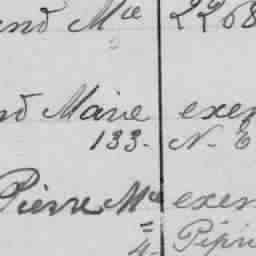 and Mce 2268
nd Marie exem
133. N. E
Pierre Mce exem
= 4. Pépin